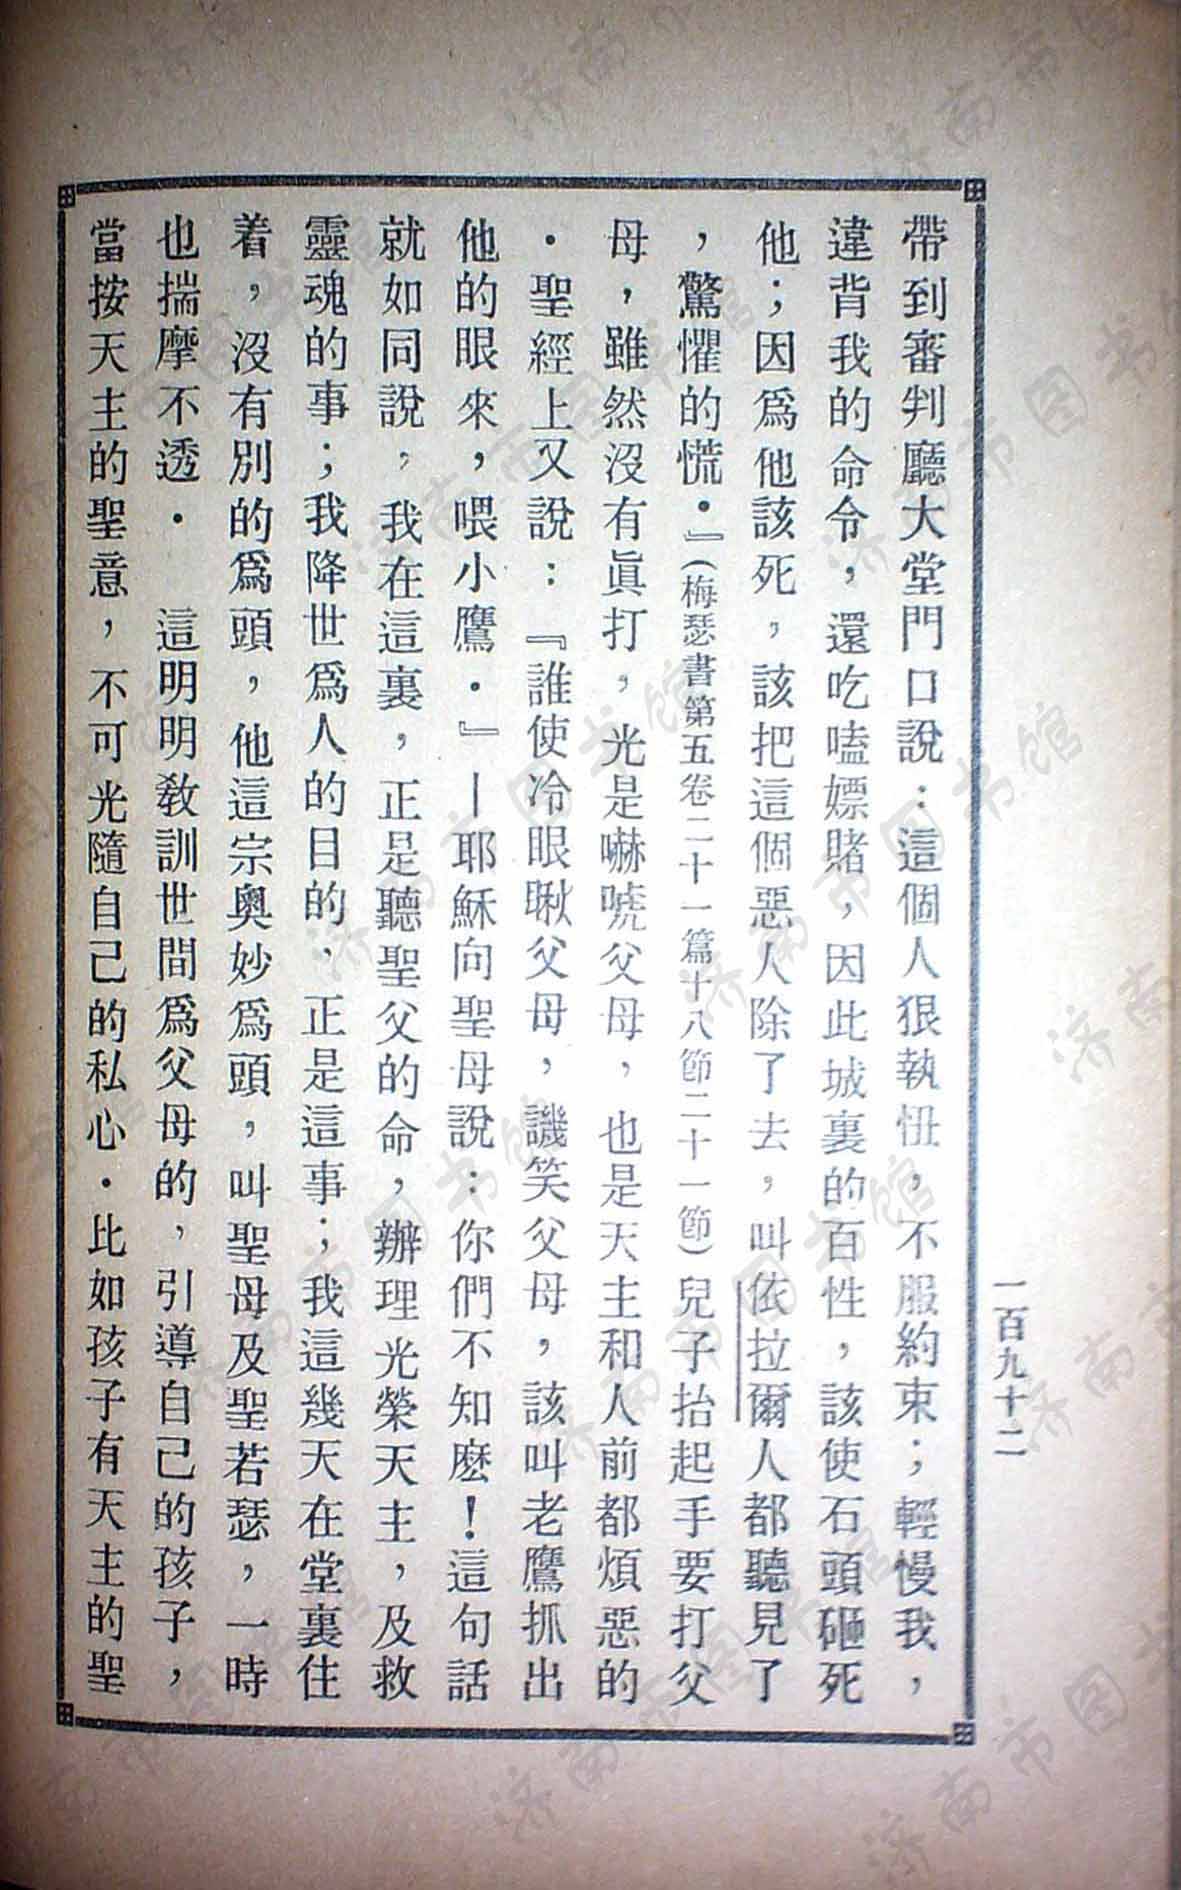 帶到審判廳大堂門口說：這個人狠執忸，不服約束；輕慢我，
違背我的命令，還吃嗑嫖賭，因此城裏的百性，該使石頭砸死
他；因爲他該死，該把這個惡人除了去，叫依拉爾人都聽見了
，驚懼的慌．』（梅瑟書第五卷二十一篇十八節二十一節）兒子抬起手要打父
母，雖然沒有眞打，光是嚇唬父母，也是天主和人前都煩惡的
．聖經上又說：『誰使冷眼瞅父母，譏笑父母，該叫老鷹抓出
他的眼來，喂小鷹．』—耶穌向聖母說：你們不知麽！這句話
就如同說，我在這裏，正是聽聖父的命，辦理光榮天主，及救
靈魂的事；我降世爲人的目的，正是這事；我這幾天在堂裏住
着，沒有別的爲頭，他這宗奥妙爲頭，叫聖母及聖若瑟，一時
也揣摩不透．　這明明教訓世間爲父母的，引導自己的孩子，
當按天主的聖意，不可光隨自己的私心．比如孩子有天主的聖
一百九十二
济南市图书馆